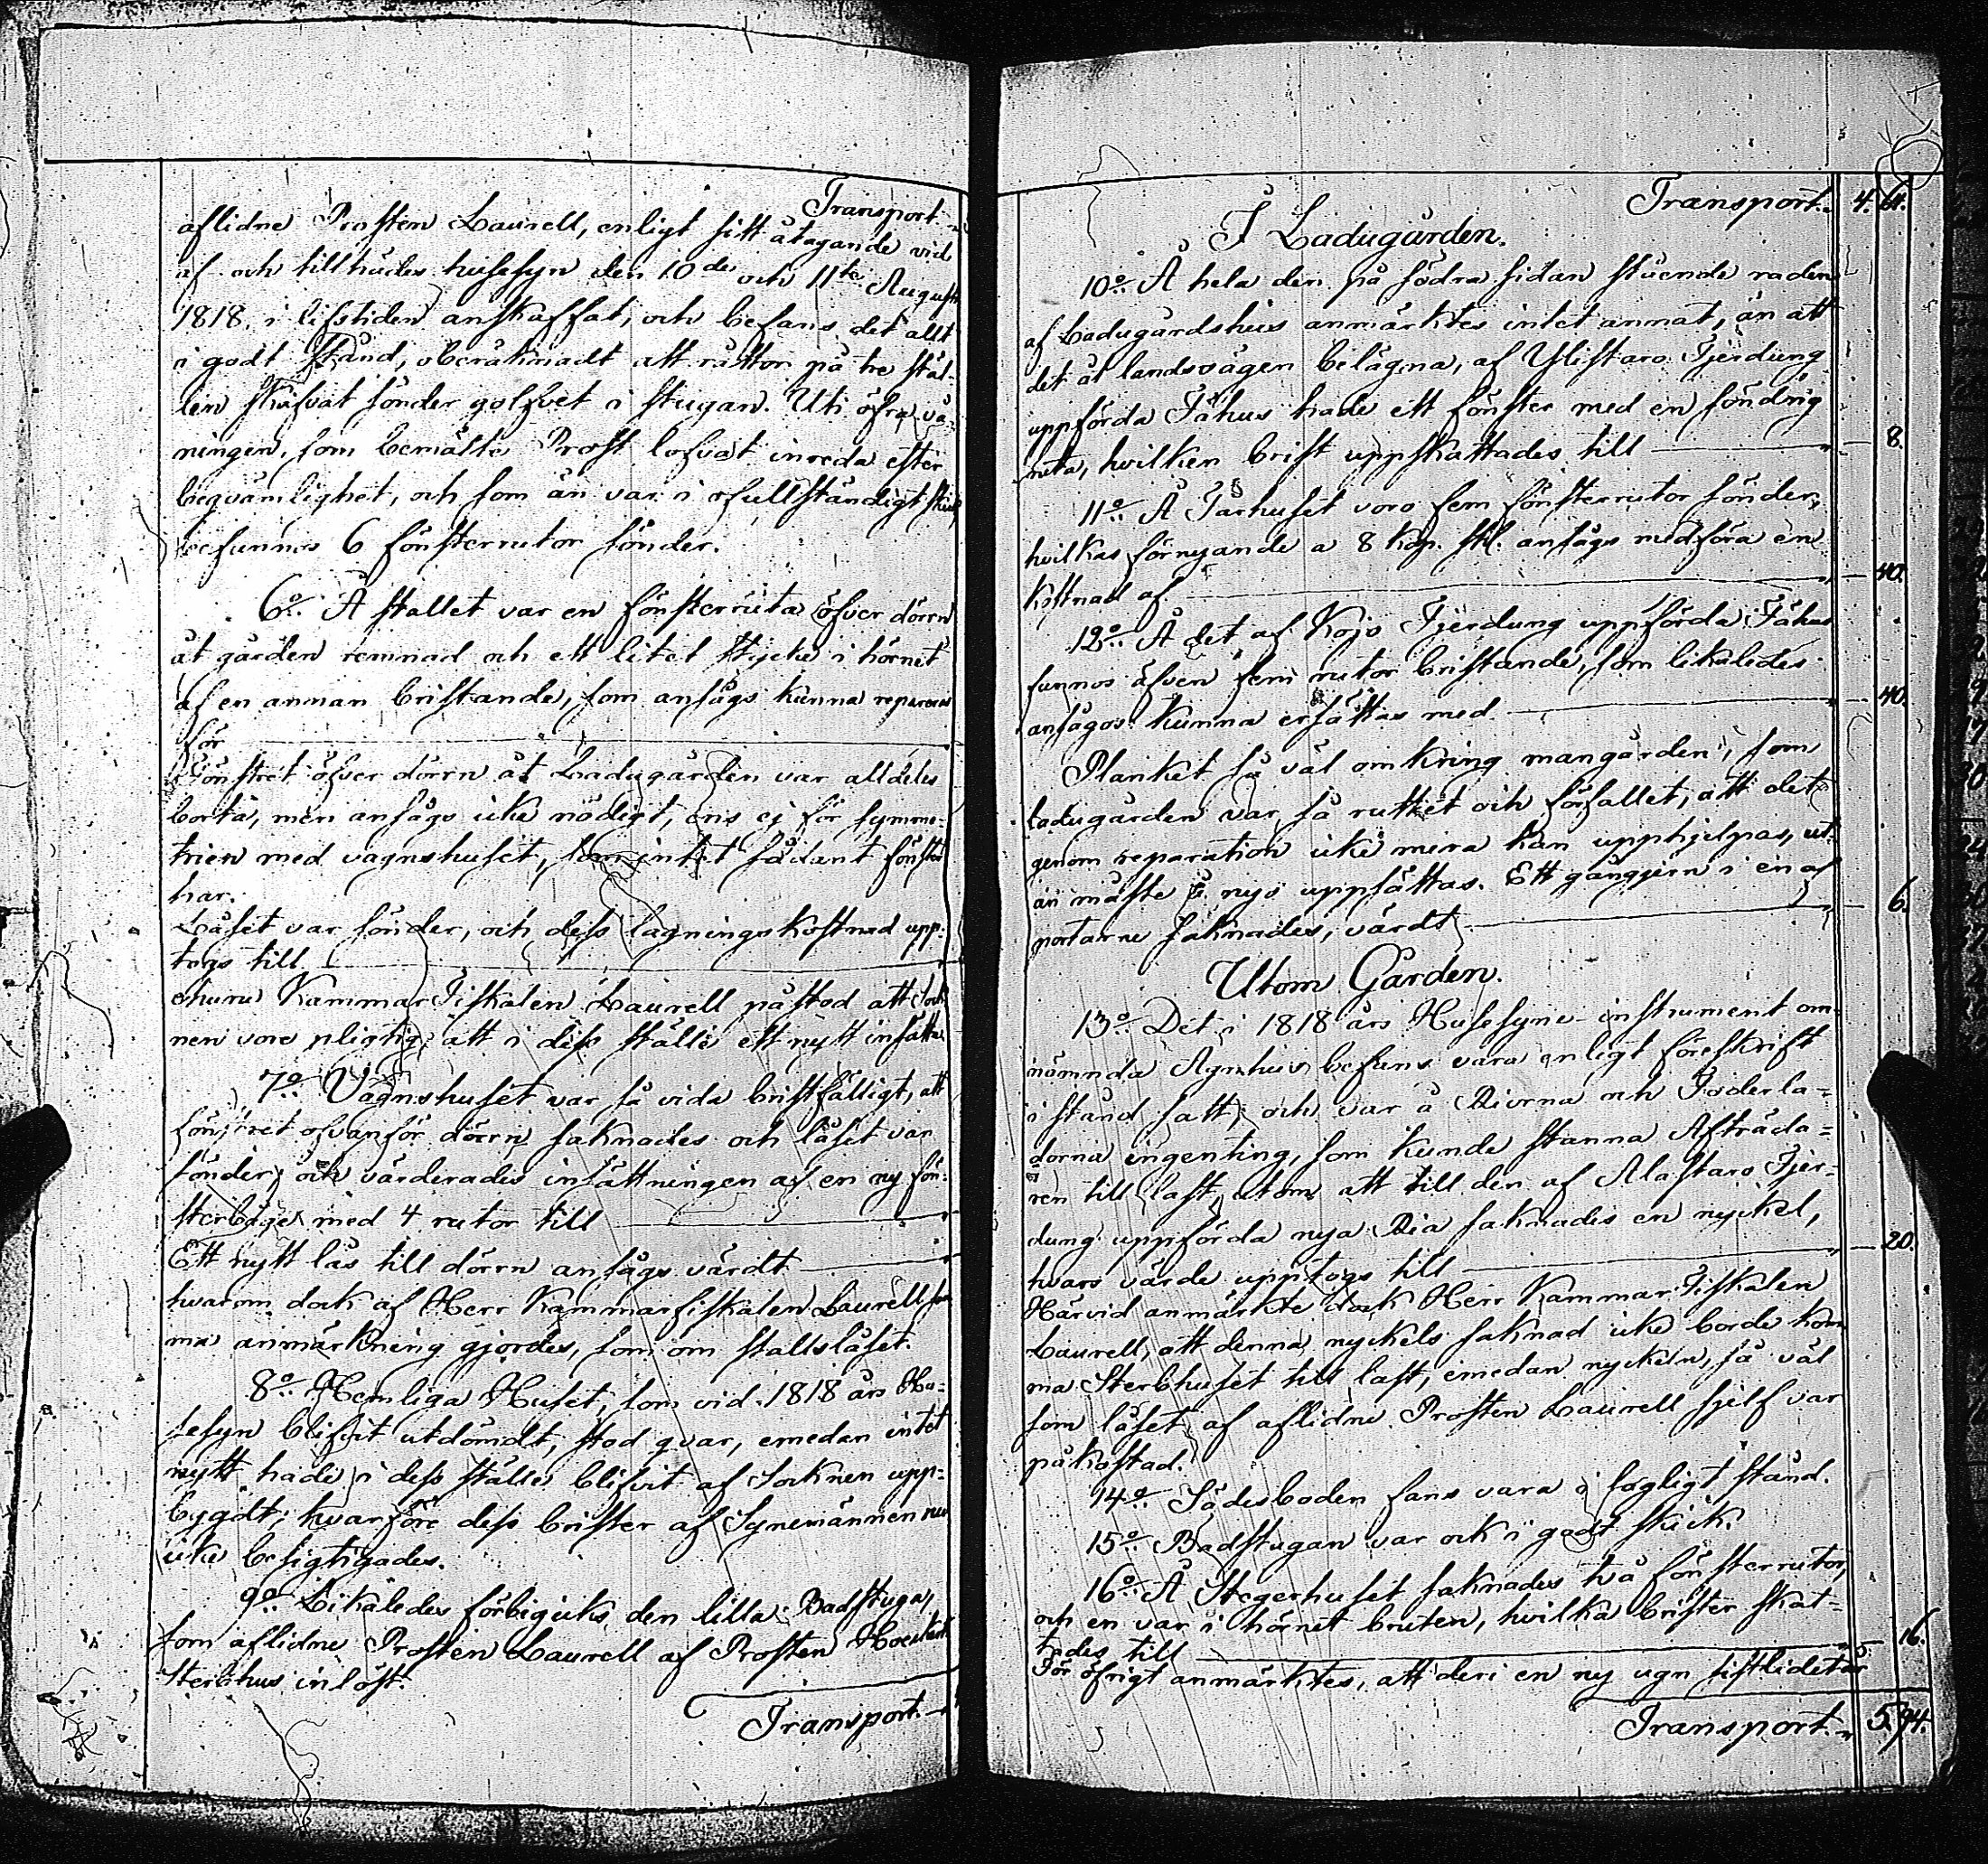 Transport.
aflidne Prosten Laurell, enligt sitt åtagande vid
af- och tillträdes husesyn den 10de och 11te Augusti
1818, i lifstiden anskaffat, och befans det allt
i godt stånd, oberäknadt att råttor på tre stäl-
len skafvat sönder golfvet i stugan. Uti öfra vå-
ningen, som bemälte Prost lofvat inreda efter
beqvämlighet, och som än var i ofullständigt skick
befunnos 6 fönsterrutor sönder.
6o. Å stallet var en fönsterruta öfver dörrn
åt gården remnad och ett litet stycke i hörnet
af en annan bristande, som ansågs kunna repareras
för
Fönstret öfver dörrn åt Ladugården var alldeles
borta, men ansågs icke nödigt, ens ej för symme-
trien med vagnshuset, som intet sådant fönster
har.
Låset var sönder, och dess lagningskostnad upp-
togs till
ehuru Kammar Fiskalen Laurell påstod att Sock-
nen vore pligtig att i dess ställe ett nytt insätta.
7o. Vagnshuset var så vida bristfälligt, att
fönstret ofvanför dörrn saknades och låset var
sönder, och värderades insättningen af en ny fön-
sterbåge med 4 rutor till
Ett nytt lås till dörrn ansågs värdt
hvarom dock af Herr Kammarfiskalen Laurell sam-
ma anmärkning gjordes, som om stallslåset.
8o. Hemliga Huset, som vid 1818 års Hu-
sesyn blifvit utdömdt, stod qvar, emedan intet
nytt hade i dess ställe blifvit af Socknen upp-
bygdt; hvarföre dess brister af Synemännen nu
icke besigtigades.
9o. Likaledes förbigicks den lilla Badstuga,
som aflidne Prosten Laurell af Prosten
Sterbhus inlöst.
Transport.
Transport. 4. 64.
I Ladugården.
10o. Å hela den på södra sidan stående raden
af Ladugårdshus anmärktes intet annat, än att
det åt landsvägen belägna, af Ylistaro Fjerdung
uppförda Fähus hade ett fönster med en söndrig
ruta, hvilken brist uppskattades till 8.
11o. Å Farhuset voro fem fönsterrutor sönder,
hvilkas förnyande a 8 kop. st. ansågs medföra en
kostnad af 40.
12o. Å det af Kojo Fjerdung uppförda Fähus
funnos äfven fem rutor bristande, som likaledes
ansågos kunna ersättas med 40.
Planket så väl omkring mangården, som
ladugården var så ruttet och förfallet, att det
genom reparation icke mera kan upphjelpas, ut-
an måste å nyo uppsättas. Ett gångjern i en af
portarne saknades, värdt 6.
Utom Gården.
13o. Det i 1818 års Husesyns-instrument om-
nämnda Agnhus befans vara enligt föreskrift
i stånd satt; och var å Riorna och Foderla-
dorna ingenting, som kunde stanna Afträda-
ren till last, utom att till den af Alastaro Fjer-
dung uppförda nya Ria saknades en nyckel,
hvars värde upptogs till 20.
Härvid anmärkte dock Herr Kammar Fiskalen
Laurell, att denna nyckels saknad icke borde kom-
ma Sterbhuset till last, emedan nyckeln, så väl
som låset af aflidne Prosten Laurell sjelf var
påkostad.
14o. Sädesboden fans vara i lagligt stånd.
15o. Badstugan var ock i godt skick.
16o. Å Stegerhuset saknades två fönsterrutor,
och en var i hörnet bruten, hvilka brister skat-
tades till 16.
För öfrigt anmärktes, att deri en ny ugn sistlidet år
Transport. 5. 94.